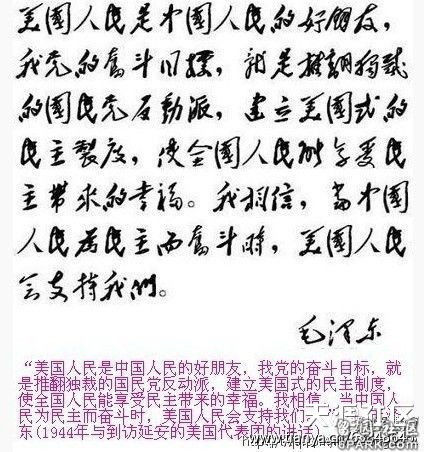 美國人民是中國人民的好朋友，
我党的奮斗目標，就是推翻獨裁
的國民党反動派，建立美國式的
民主製度，使全國人民能享受民
主帶來的幸福。我相信，當中國
人民為民主而奮斗時，美國人民
会支持我們。
毛泽东
“美国人民是中国人民的好朋友，我党的奋斗目标，就
是推翻独裁的国民党反动派，建立美国式的民主制度，
使全国人民能享受民主带来的幸福。我相信，当中国人
民为民主而奋斗时，美国人民会支持我们
东(1944年与到访延安的美国代表团的讲话)